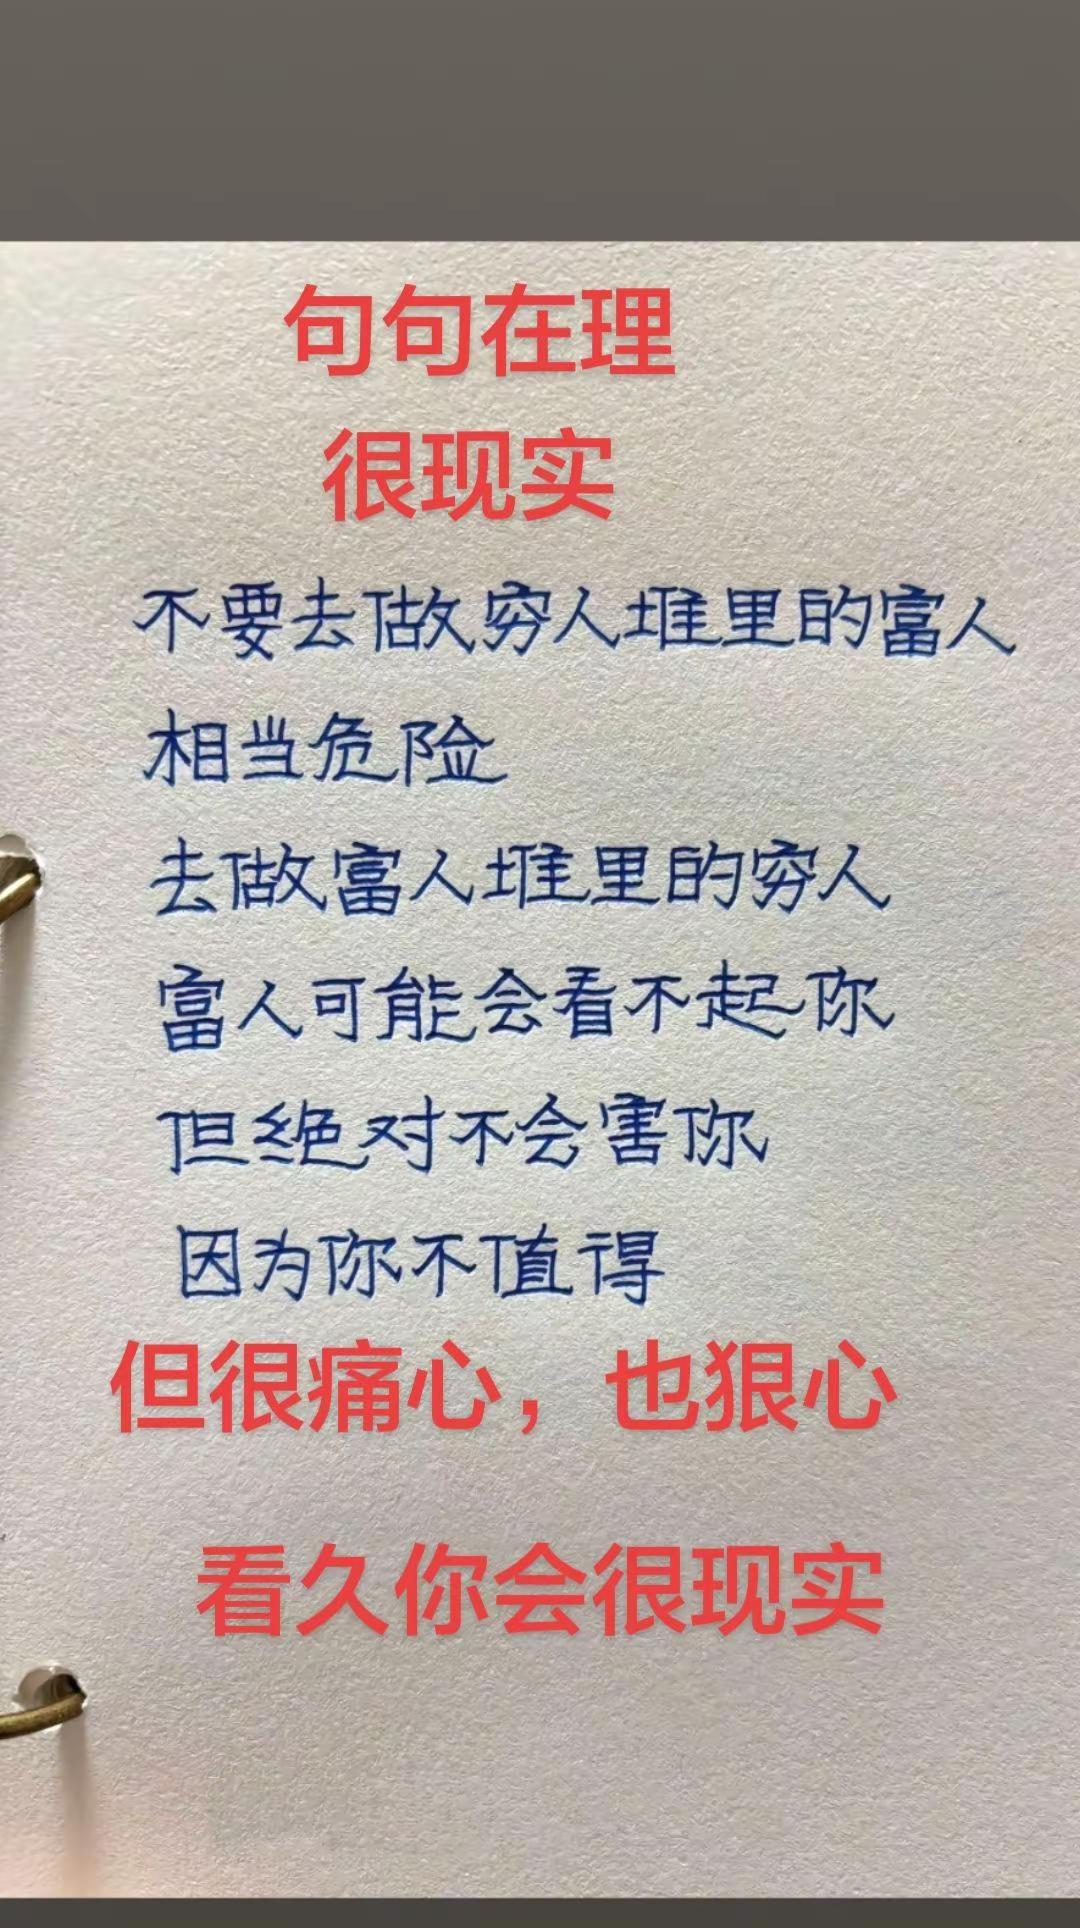 句句在理
很现实
不要去做穷人堆里的富人
相当危险
去做富人堆里的穷人
富人可能会看不起你
但绝对不会害你
因为你不值得
但很痛心，也狠心
看久你会很现实